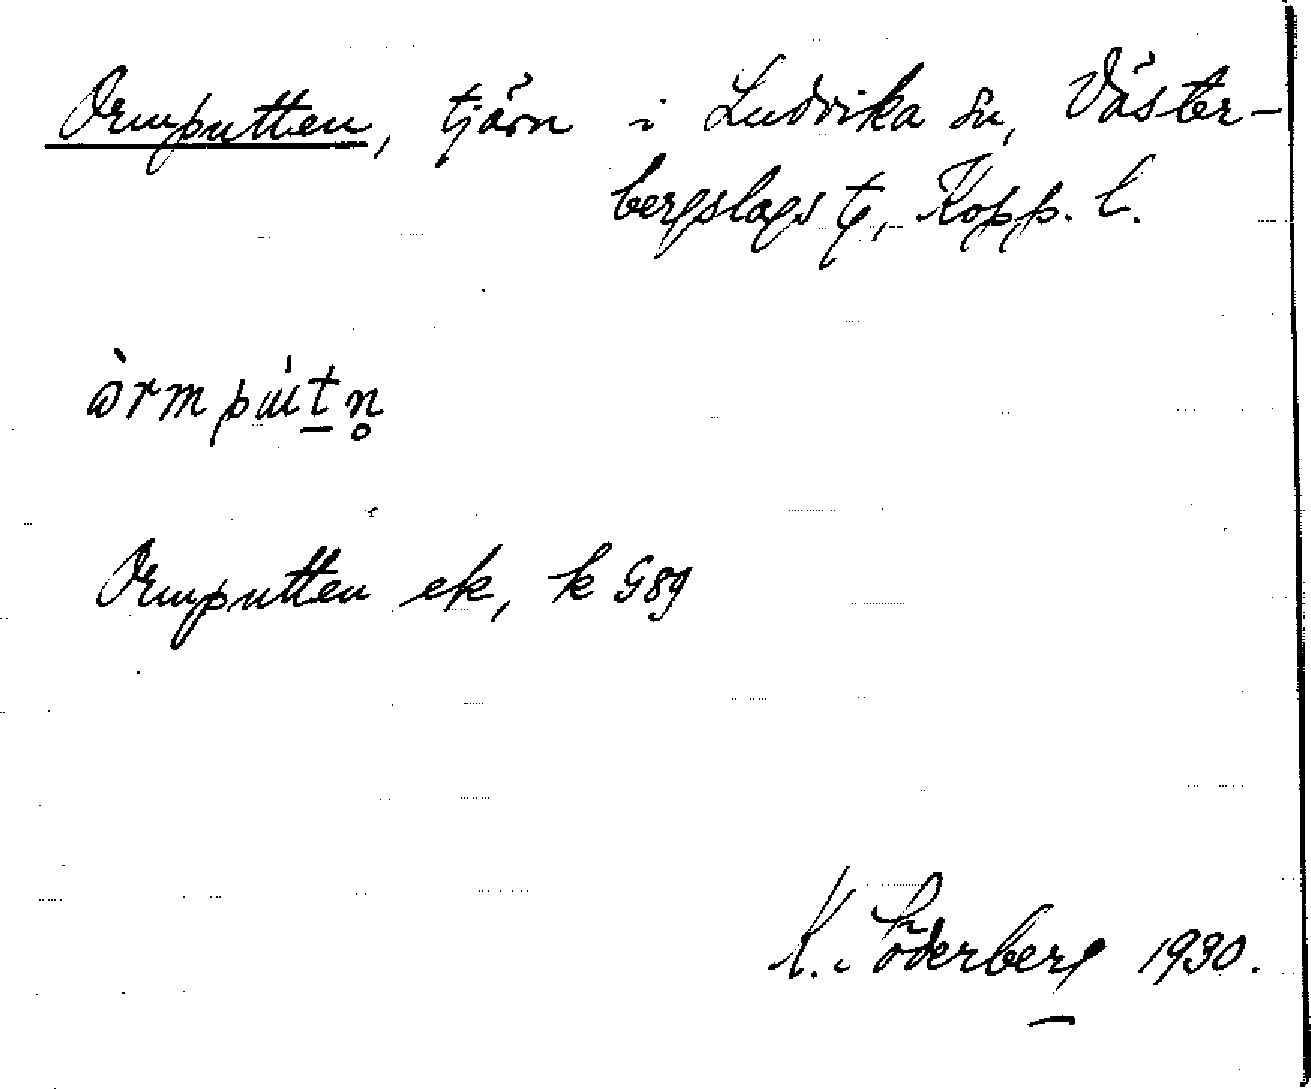 Ormputten, tjärn i Ludvika sn, Väster-
bergslags tg, Kopp. l.
òrmpùtn̥
Ormputten ek, k G89
K. Söderberg 1930.